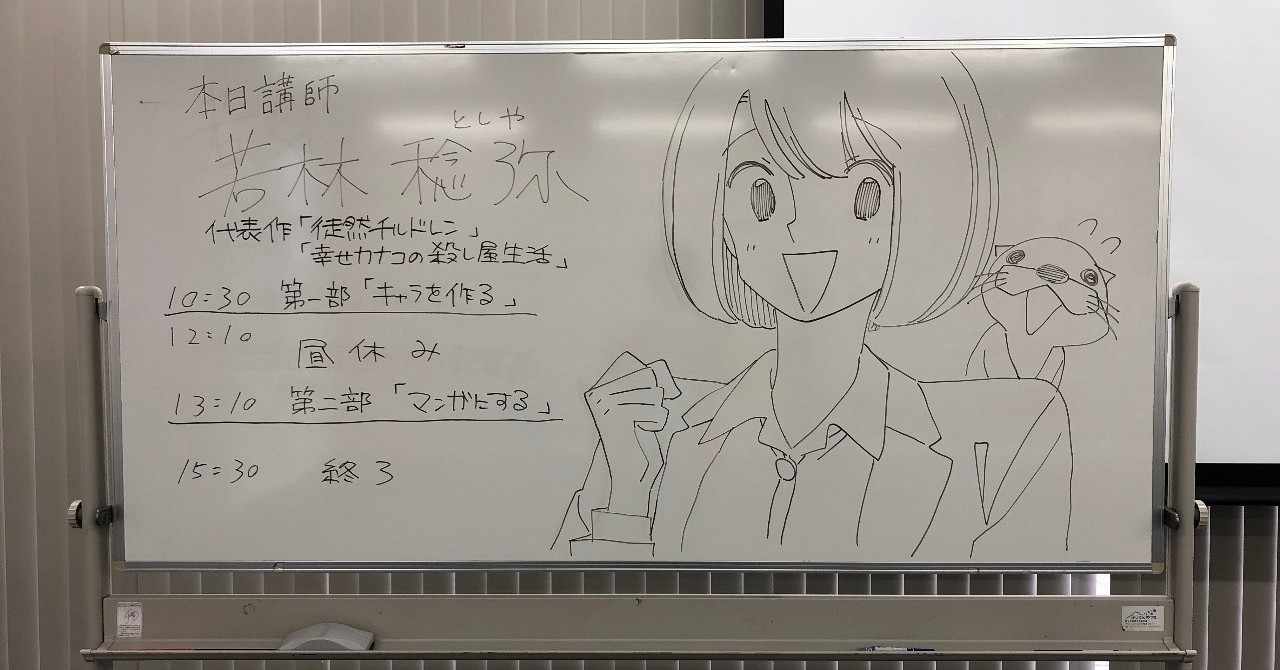 本日講師
としや
若林 稔弥
代表作「徒然チルドレン」
「幸せカナコの殺し屋生活」
10:30 第一部「キャラを作る」
12:10 昼休み
13:10 第二部「マンガにする」
15:30 終了